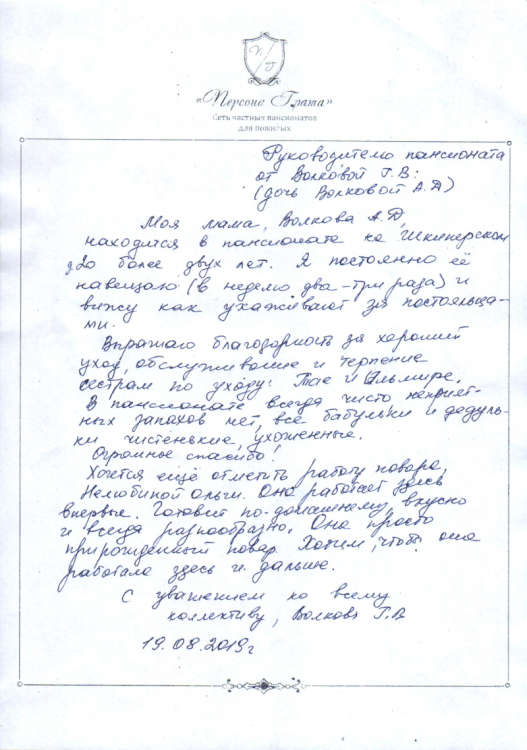 П Г
«Персона Грата»
Сеть частных пансионатов
для пожилых
Руководителю пансионата
от Волковой Г.В:
(дочь Волковой А.Д)
Моя мама, Волкова А.Д,
находится в пансионате на Шкиперском
д20 более двух лет. Я постоянно её
навещаю (в неделю два-три раза) и
вижу как ухаживают за постояльца-
ми.
Выражаю благодарность за хороший
уход, обслуживание и терпение
сёстрам по уходу: Тае и Эльмире.
В пансионате всегда чисто неприят-
ных запахов нет, все бабульки и дедуль-
ки чистенькие, ухоженные.
Огромное спасибо!
Хочется ещё отметить работу повара,
Нелюбиной Ольги. Она работает здесь
впервые. Готовит по-домашнему, вкусно
и всегда разнообразно. Она просто
прирожденный повар. Хотим, чтоб она
работала здесь и дальше.
С уважением ко всему
коллективу, Волкова Г.В
19.08.2019г